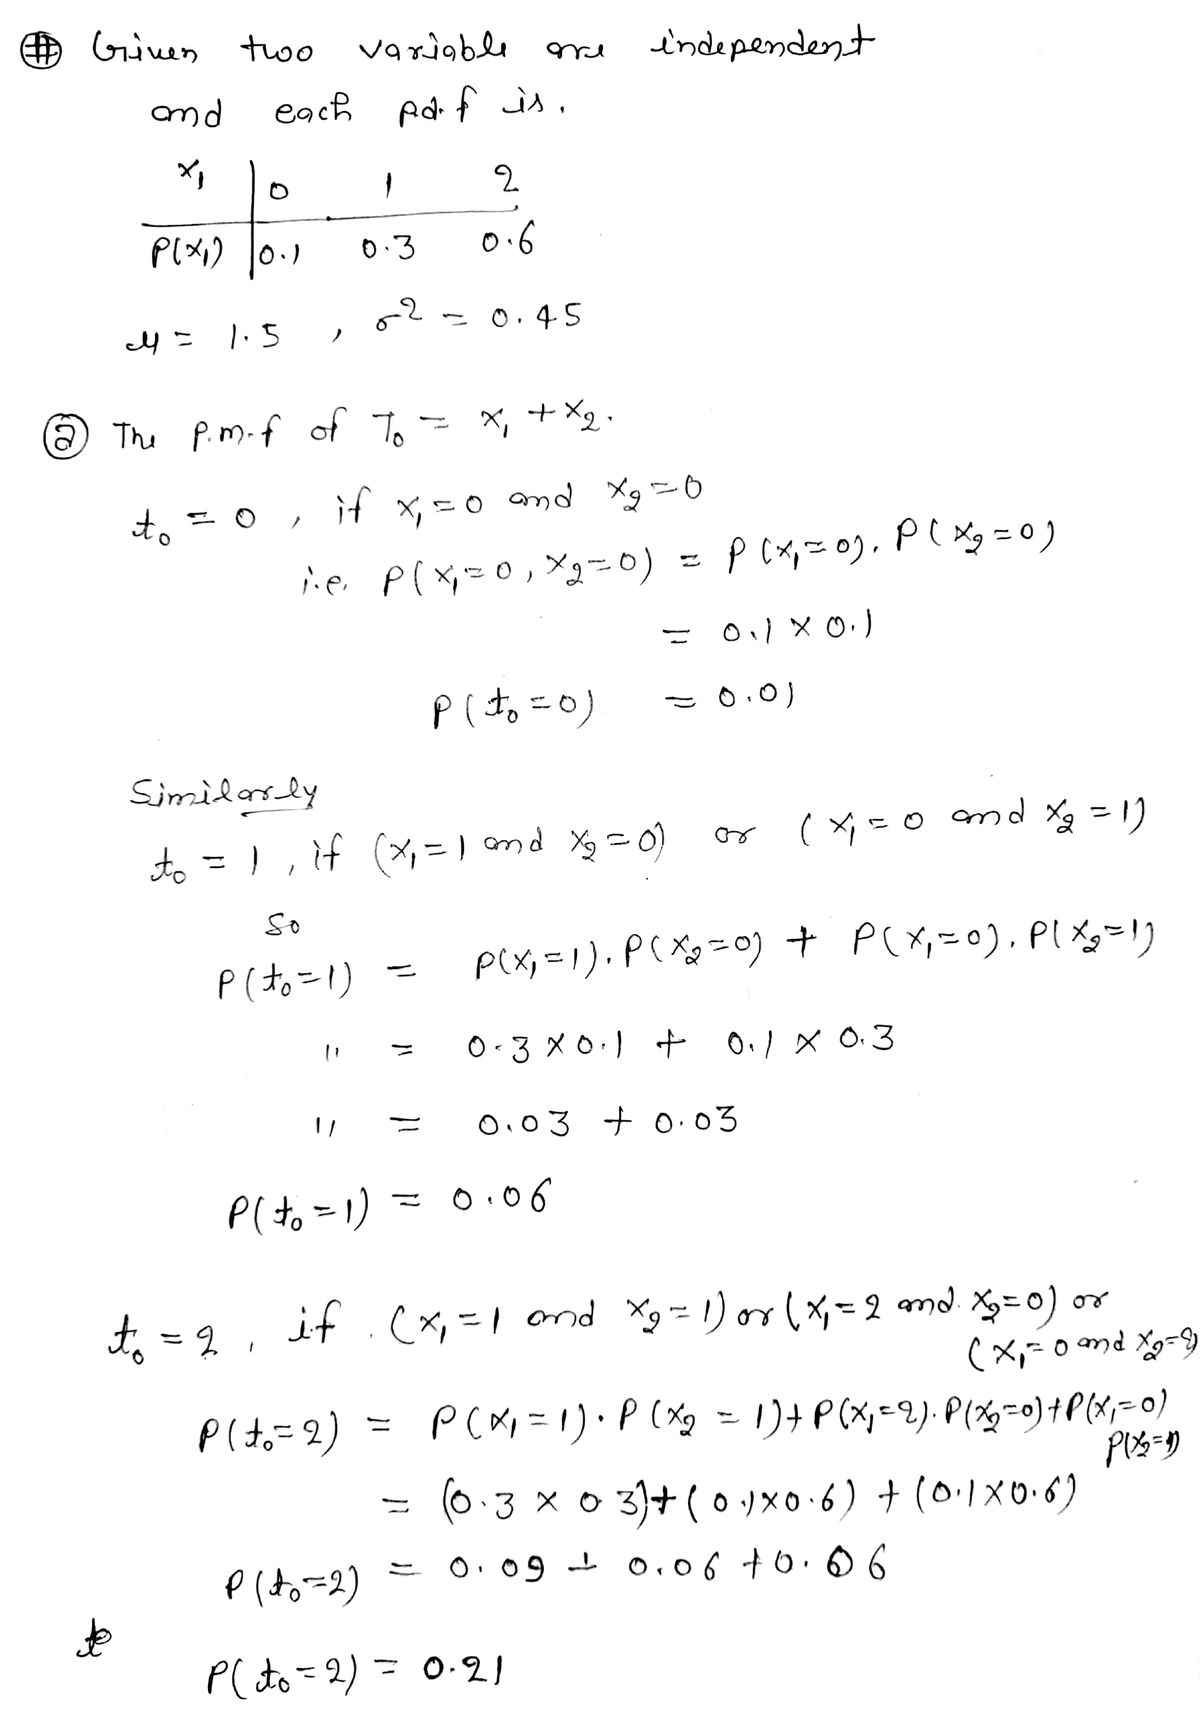 # Given two variable are independent
and each p.d.f is.
x₁ | 0 1 2
P(x₁) | 0.1 0.3 0.6
μ = 1.5 , σ² = 0.45
(a) The p.m.f of T₀ = x₁ + x₂.
t₀ = 0 , if x₁ = 0 and x₂ = 0
i.e. P(x₁=0, x₂=0) = P(x₁=0). P(x₂=0)
= 0.1 × 0.1
P(t₀=0) = 0.01
Similarly
t₀ = 1 , if (x₁=1 and x₂=0) or (x₁=0 and x₂=1)
So
P(t₀=1) = P(x₁=1). P(x₂=0) + P(x₁=0). P(x₂=1)
" = 0.3 × 0.1 + 0.1 × 0.3
" = 0.03 + 0.03
P(t₀=1) = 0.06
t₀ = 2 , if (x₁=1 and x₂=1) or (x₁=2 and x₂=0) or
(x₁=0 and x₂=2)
P(t₀=2) = P(x₁=1). P(x₂=1)+P(x₁=2). P(x₂=0)+P(x₁=0)
= (0.3 × 0 3)+(0.1×0.6) + (0.1×0.6)
P(t₀=2) = 0.09 + 0.06 + 0.06
P(t₀=2) = 0.21